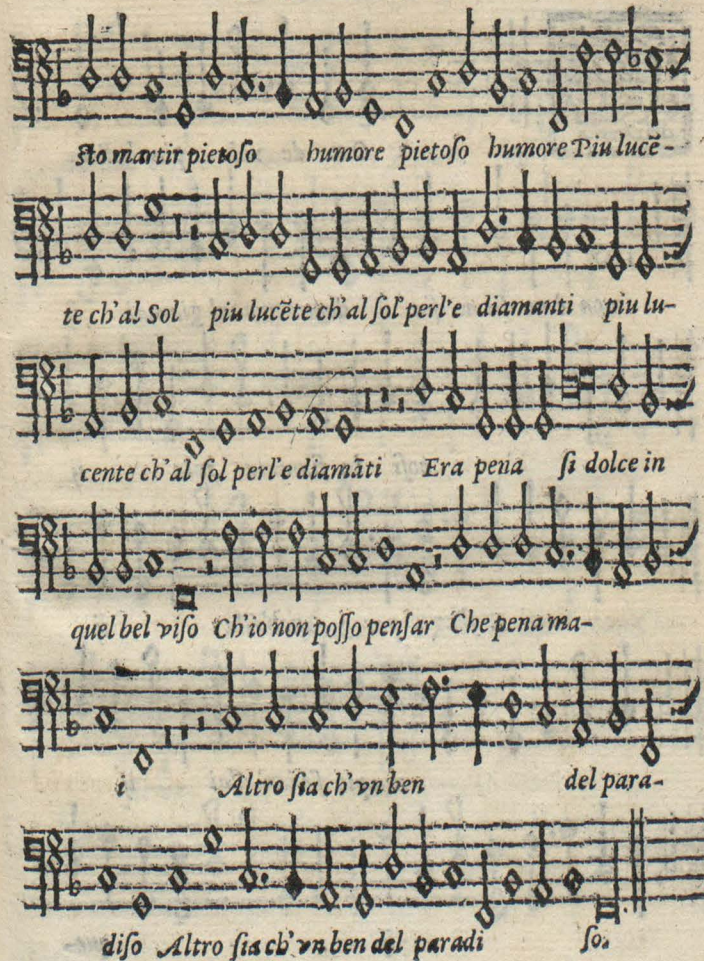 sto martir pietoſo humore pietoſo humore Piu lucē-
te ch'al Sol piu lucēte ch'al ſol perl'e diamanti piu lu-
cente ch'al ſol perl'e diamāti Era pena ſi dolce in
quel bel viſo Ch'io non poſſo penſar Che pena ma-
i Altro ſia ch'vn ben del para-
diſo Altro ſia ch'vn ben del paradi ſo.